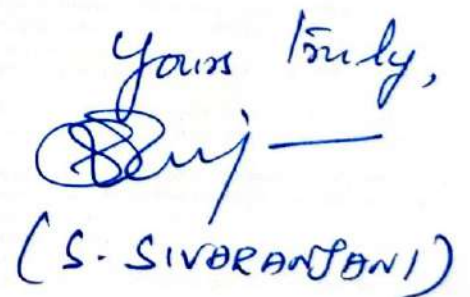 Yours truly,
(S. SIVARANJANI)